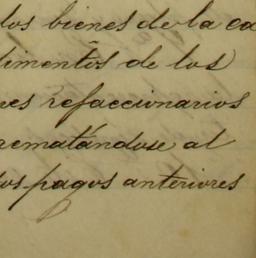 los bienes de la ca
dimentos de los
res refaccionarios
rematándose al
los pagos anteriores